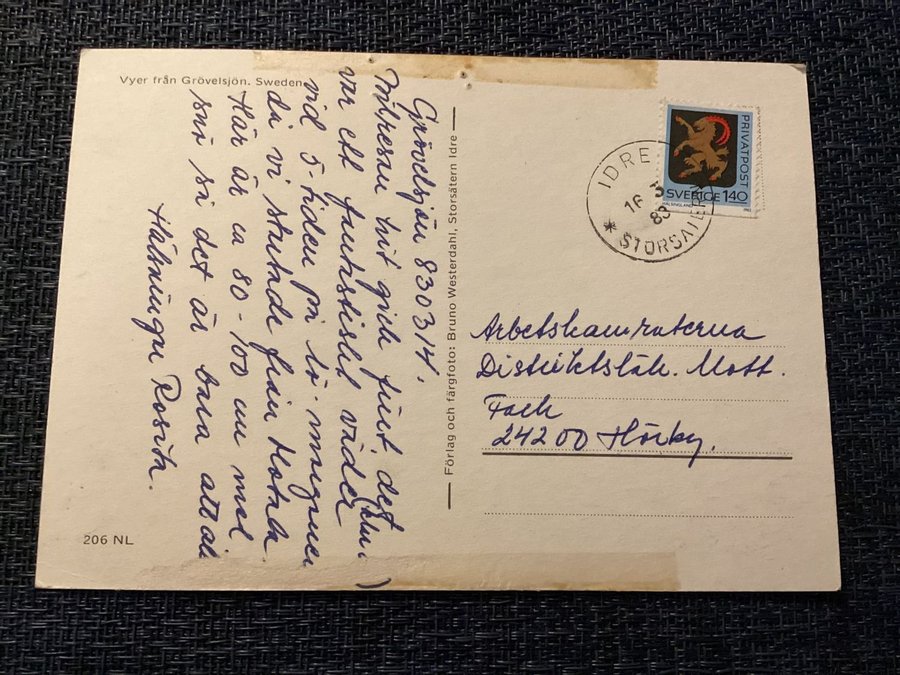 Vyer från Grövelsjön. Sweden
Grövelsjön 830314.
hit gick fint, det
var ett fantastiskt väder
vid 5-tiden på lö-morgonen
då vi startade från Motala
Här är ca 80-100 cm med
snö så det är bara att åka
Hälsningar Rosita.
206 NL
Förlag och färgfoto: Bruno Westerdahl, Storsätern Idre
PRIVATPOST
SVERIGE 140
HÄLSINGLAND
IDRE
16 3
83
* STORSÄTERN
Arbetskamraterna
Distriktsläk. Mott.
Fack
24200 Hörby.